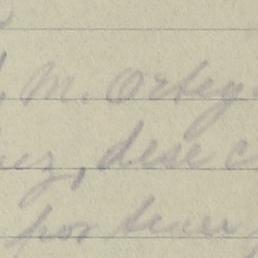 M. Orteg
uz, dese c
por tener